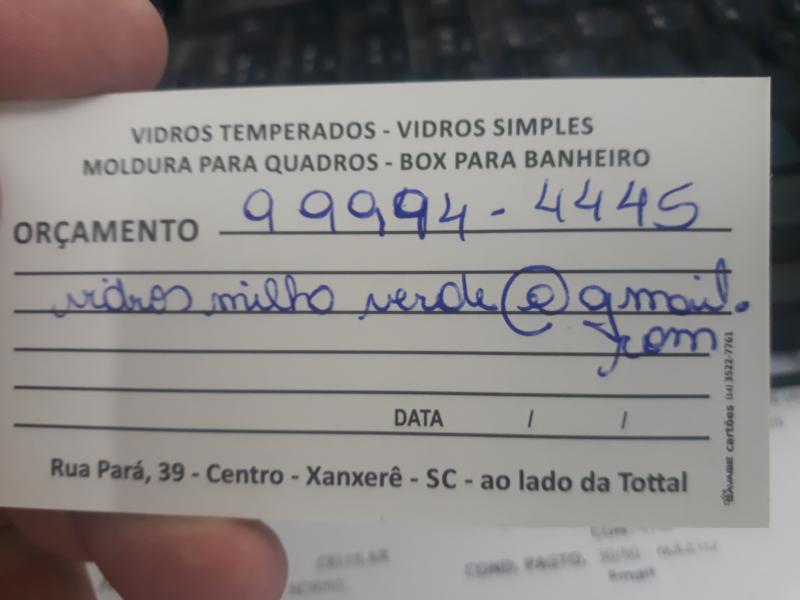 VIDROS TEMPERADOS - VIDROS SIMPLES
MOLDURA PARA QUADROS - BOX PARA BANHEIRO
ORÇAMENTO 99994-4445
vidros milho verde@gmail.
com
DATA / /
Rua Pará, 39 - Centro - Xanxerê - SC - ao lado da Tottal
cartões (14) 3522-7761
CELULAR
COND. PAGTO.
Email